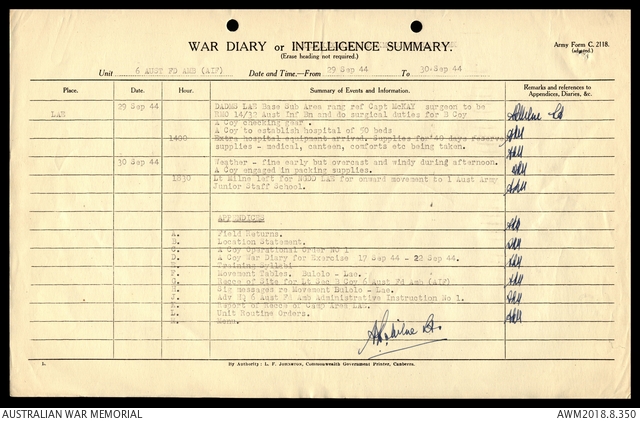 WAR DIARY or INTELLIGENCE SUMMARY.
(Erase heading not required.)
Army Form C. 2118.
(adapted.)
Unit 6 AUST FD AMB (AIF) Date and Time.—From 29 Sep 44 To 30 Sep 44
Place. Date. Hour. Summary of Events and Information. Remarks and references to Appendices, Diaries, &c.
LAE 29 Sep 44 DADMS LAE Base Sub Area rang ref Capt McKAY surgeon to be
RMO 14/32 Aust Inf Bn and do surgical duties for B Coy
A Coy checking gear.
A Coy to establish hospital of 50 beds
1400 Extra hospital equipment arrived. Supplies for 40 days reserve
supplies - medical, canteen, comforts etc being taken.
30 Sep 44 Weather - fine early but overcast and windy during afternoon.
A Coy engaged in packing supplies.
1830 Lt Milne left for LAE for onward movement to 1 Aust Army
Junior Staff School.
APPENDICES
A. Field Returns.
B. Location Statement.
C. A Coy Operational Order NO 1
D. A Coy War Diary for Exercise 17 Sep 44 - 22 Sep 44.
E. Training Syllabi
F. Movement Tables. Bulolo - Lae.
Recce of Site for Lt Sec B Coy 6 Aust Fd Amb (AIF)
Sig messages re Movement Bulolo - Lae.
J. Adv HQ 6 Aust Fd Amb Administrative Instruction No 1.
K. Report of Recce of Camp Area LAE.
L. Unit Routine Orders.
M. Memo.
Milne Lt.
1.
By Authority: L. F. Johnston, Commonwealth Government Printer, Canberra.
AUSTRALIAN WAR MEMORIAL AWM2018.8.350